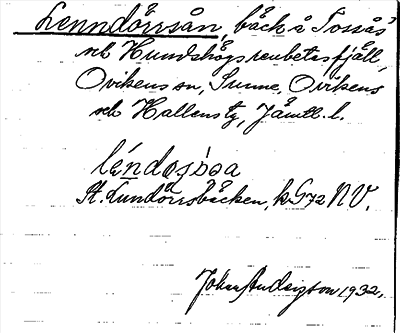 Lenndörrsån, bäck å Tossås'
och Hundshögs renbetesfjäll,
Ovikens sn, Sunne, Ovikens
och Hallens tg, Jämtl. l.
léndosḅoa
St. Lundörrsbäcken, k G72 NV.
Johan Andersson 1932.